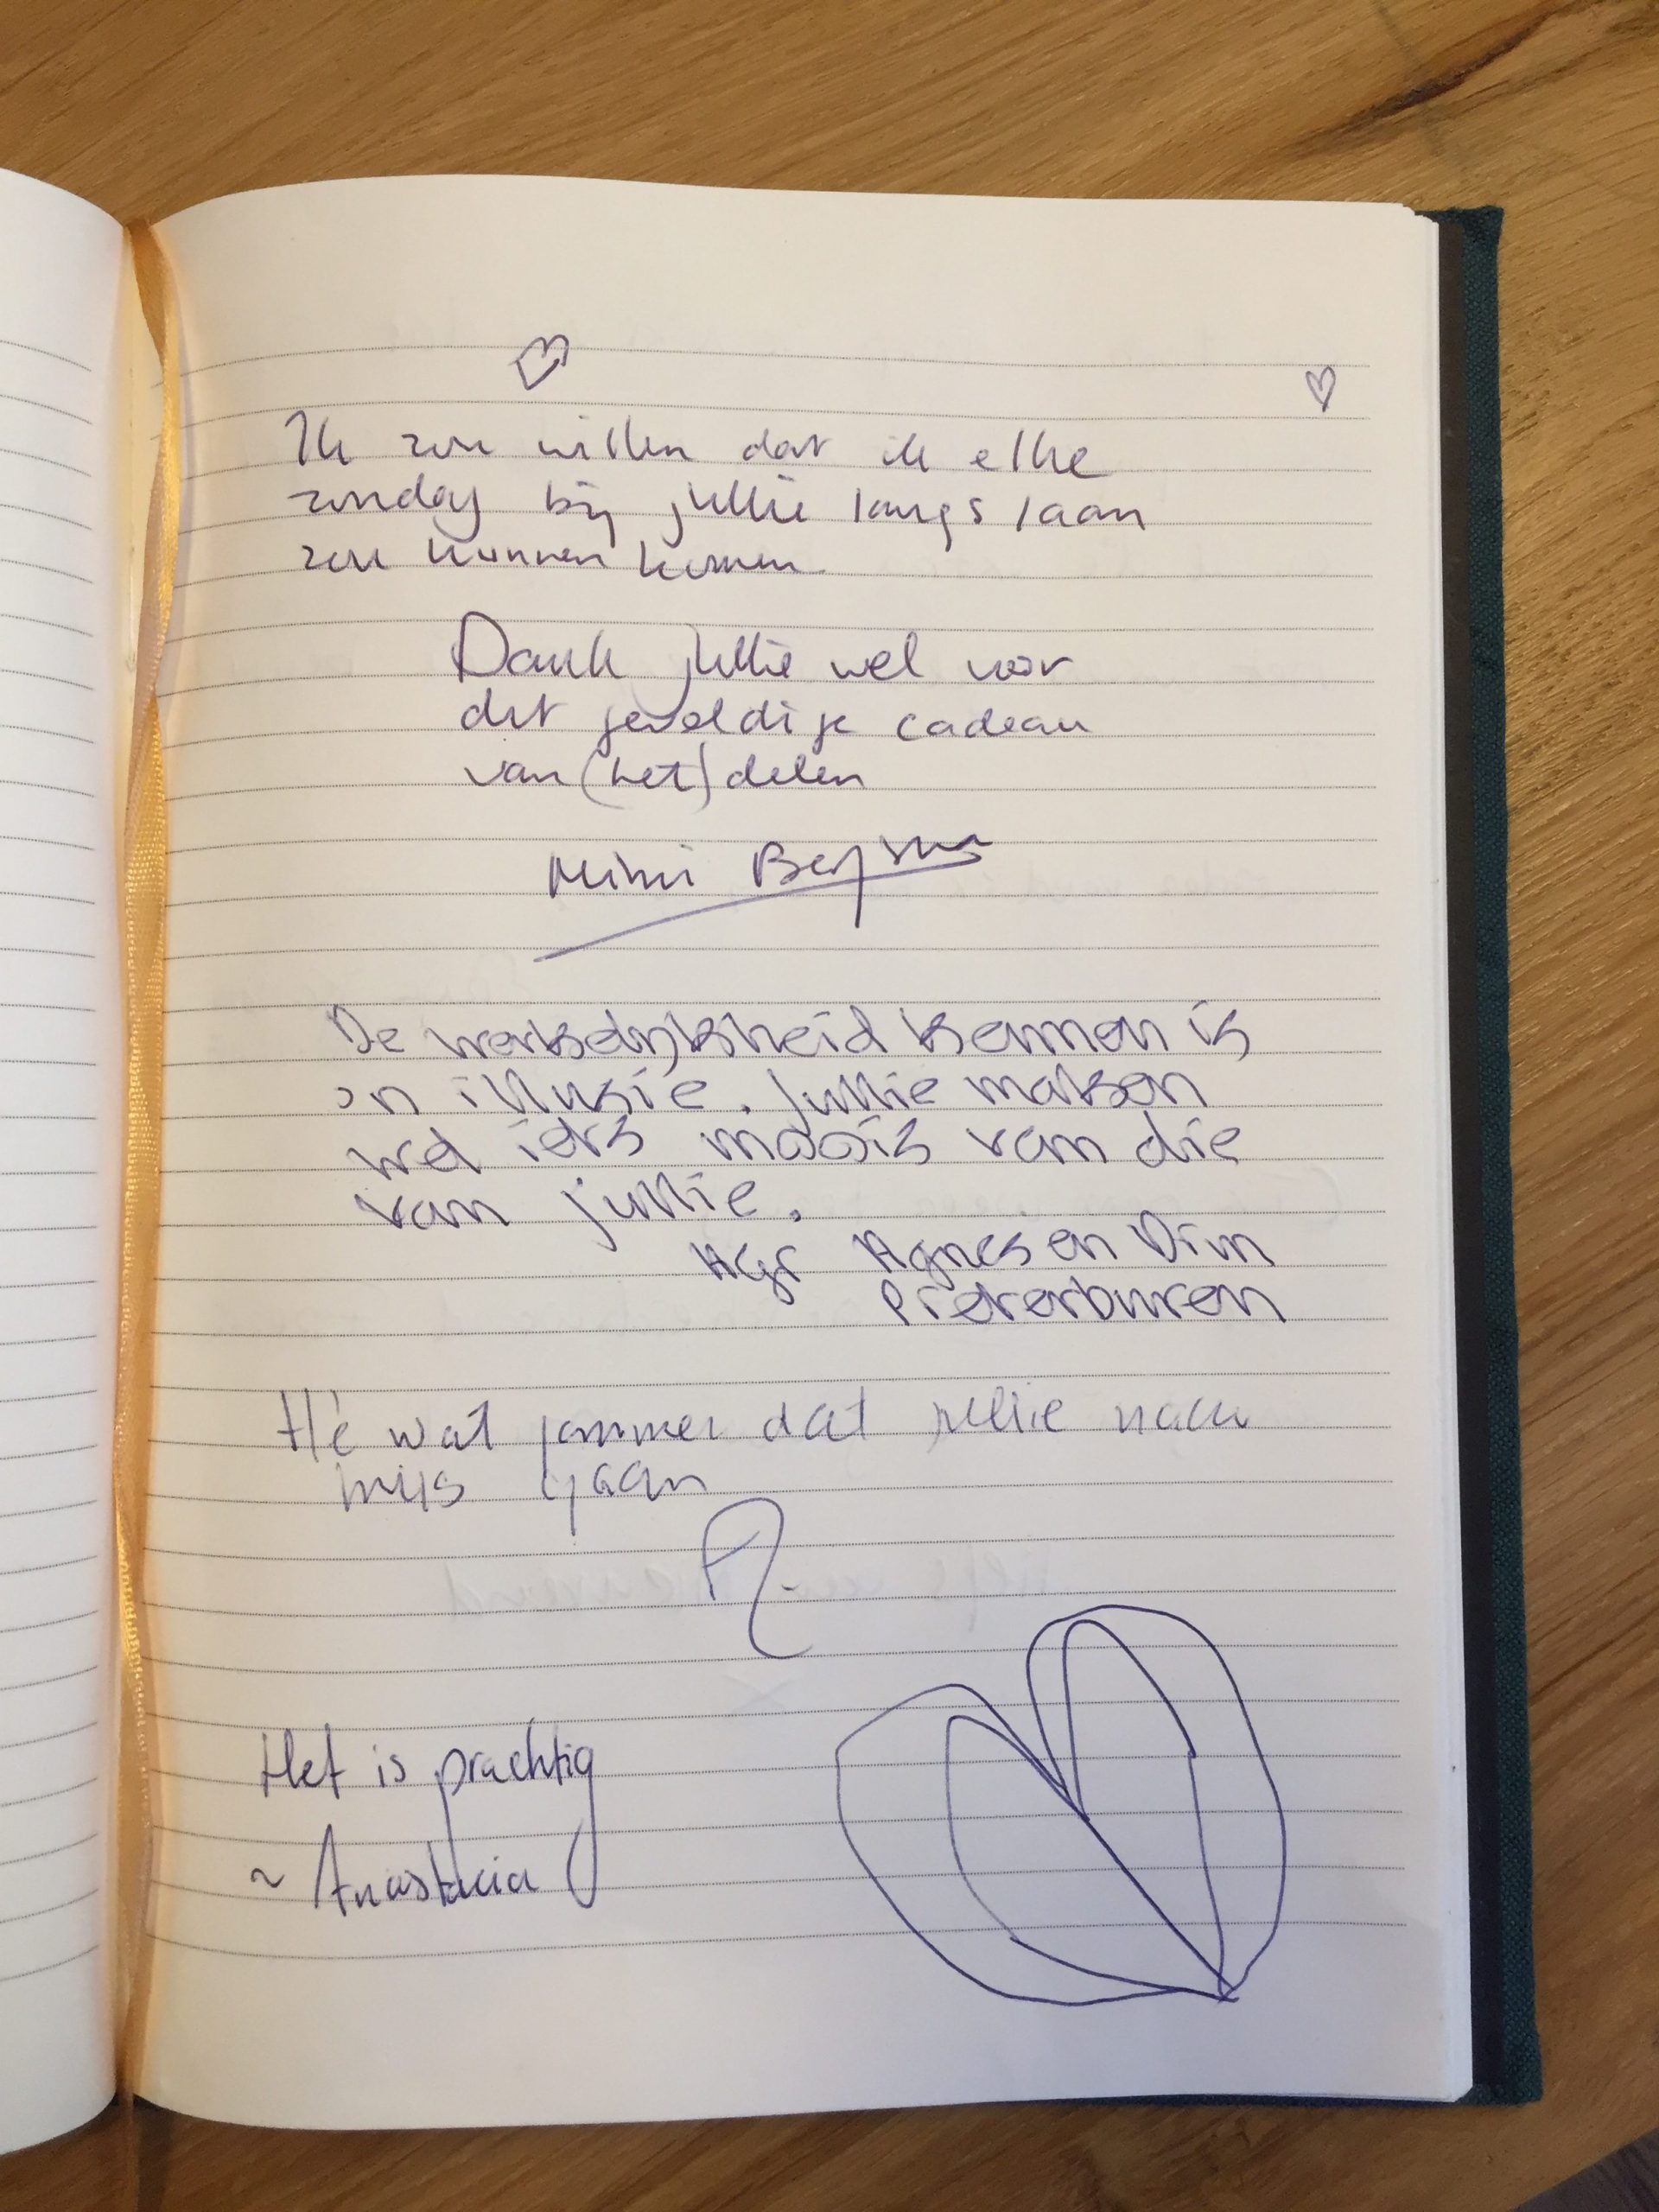 Ik zou willen dat ik elke
zondag bij jullie langs
zou kunnen komen.
Dank jullie wel voor
dit geweldige cadeau
van (het) delen
Mimi
De werkelijkheid kennen is
'n illusie. Jullie maken
wel iets moois van die
van jullie.
Hgr Agnes en Dim
Pieterburen
Hé wat jammer dat jullie naar
huis gaan
Het is prachtig
~ Anastacia